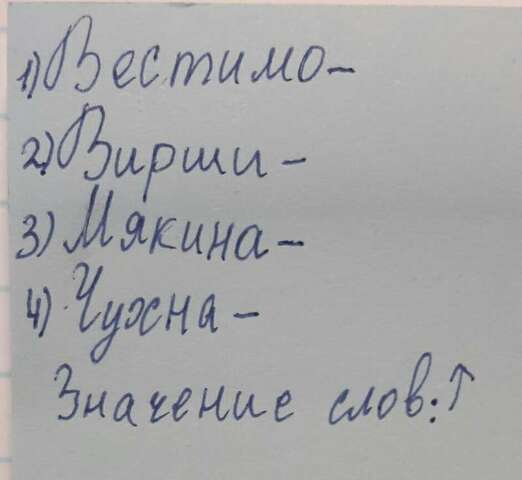 1) Вестимо –
2) Вирши –
3) Мякина –
4) Чухна –
Значение слов: ↑